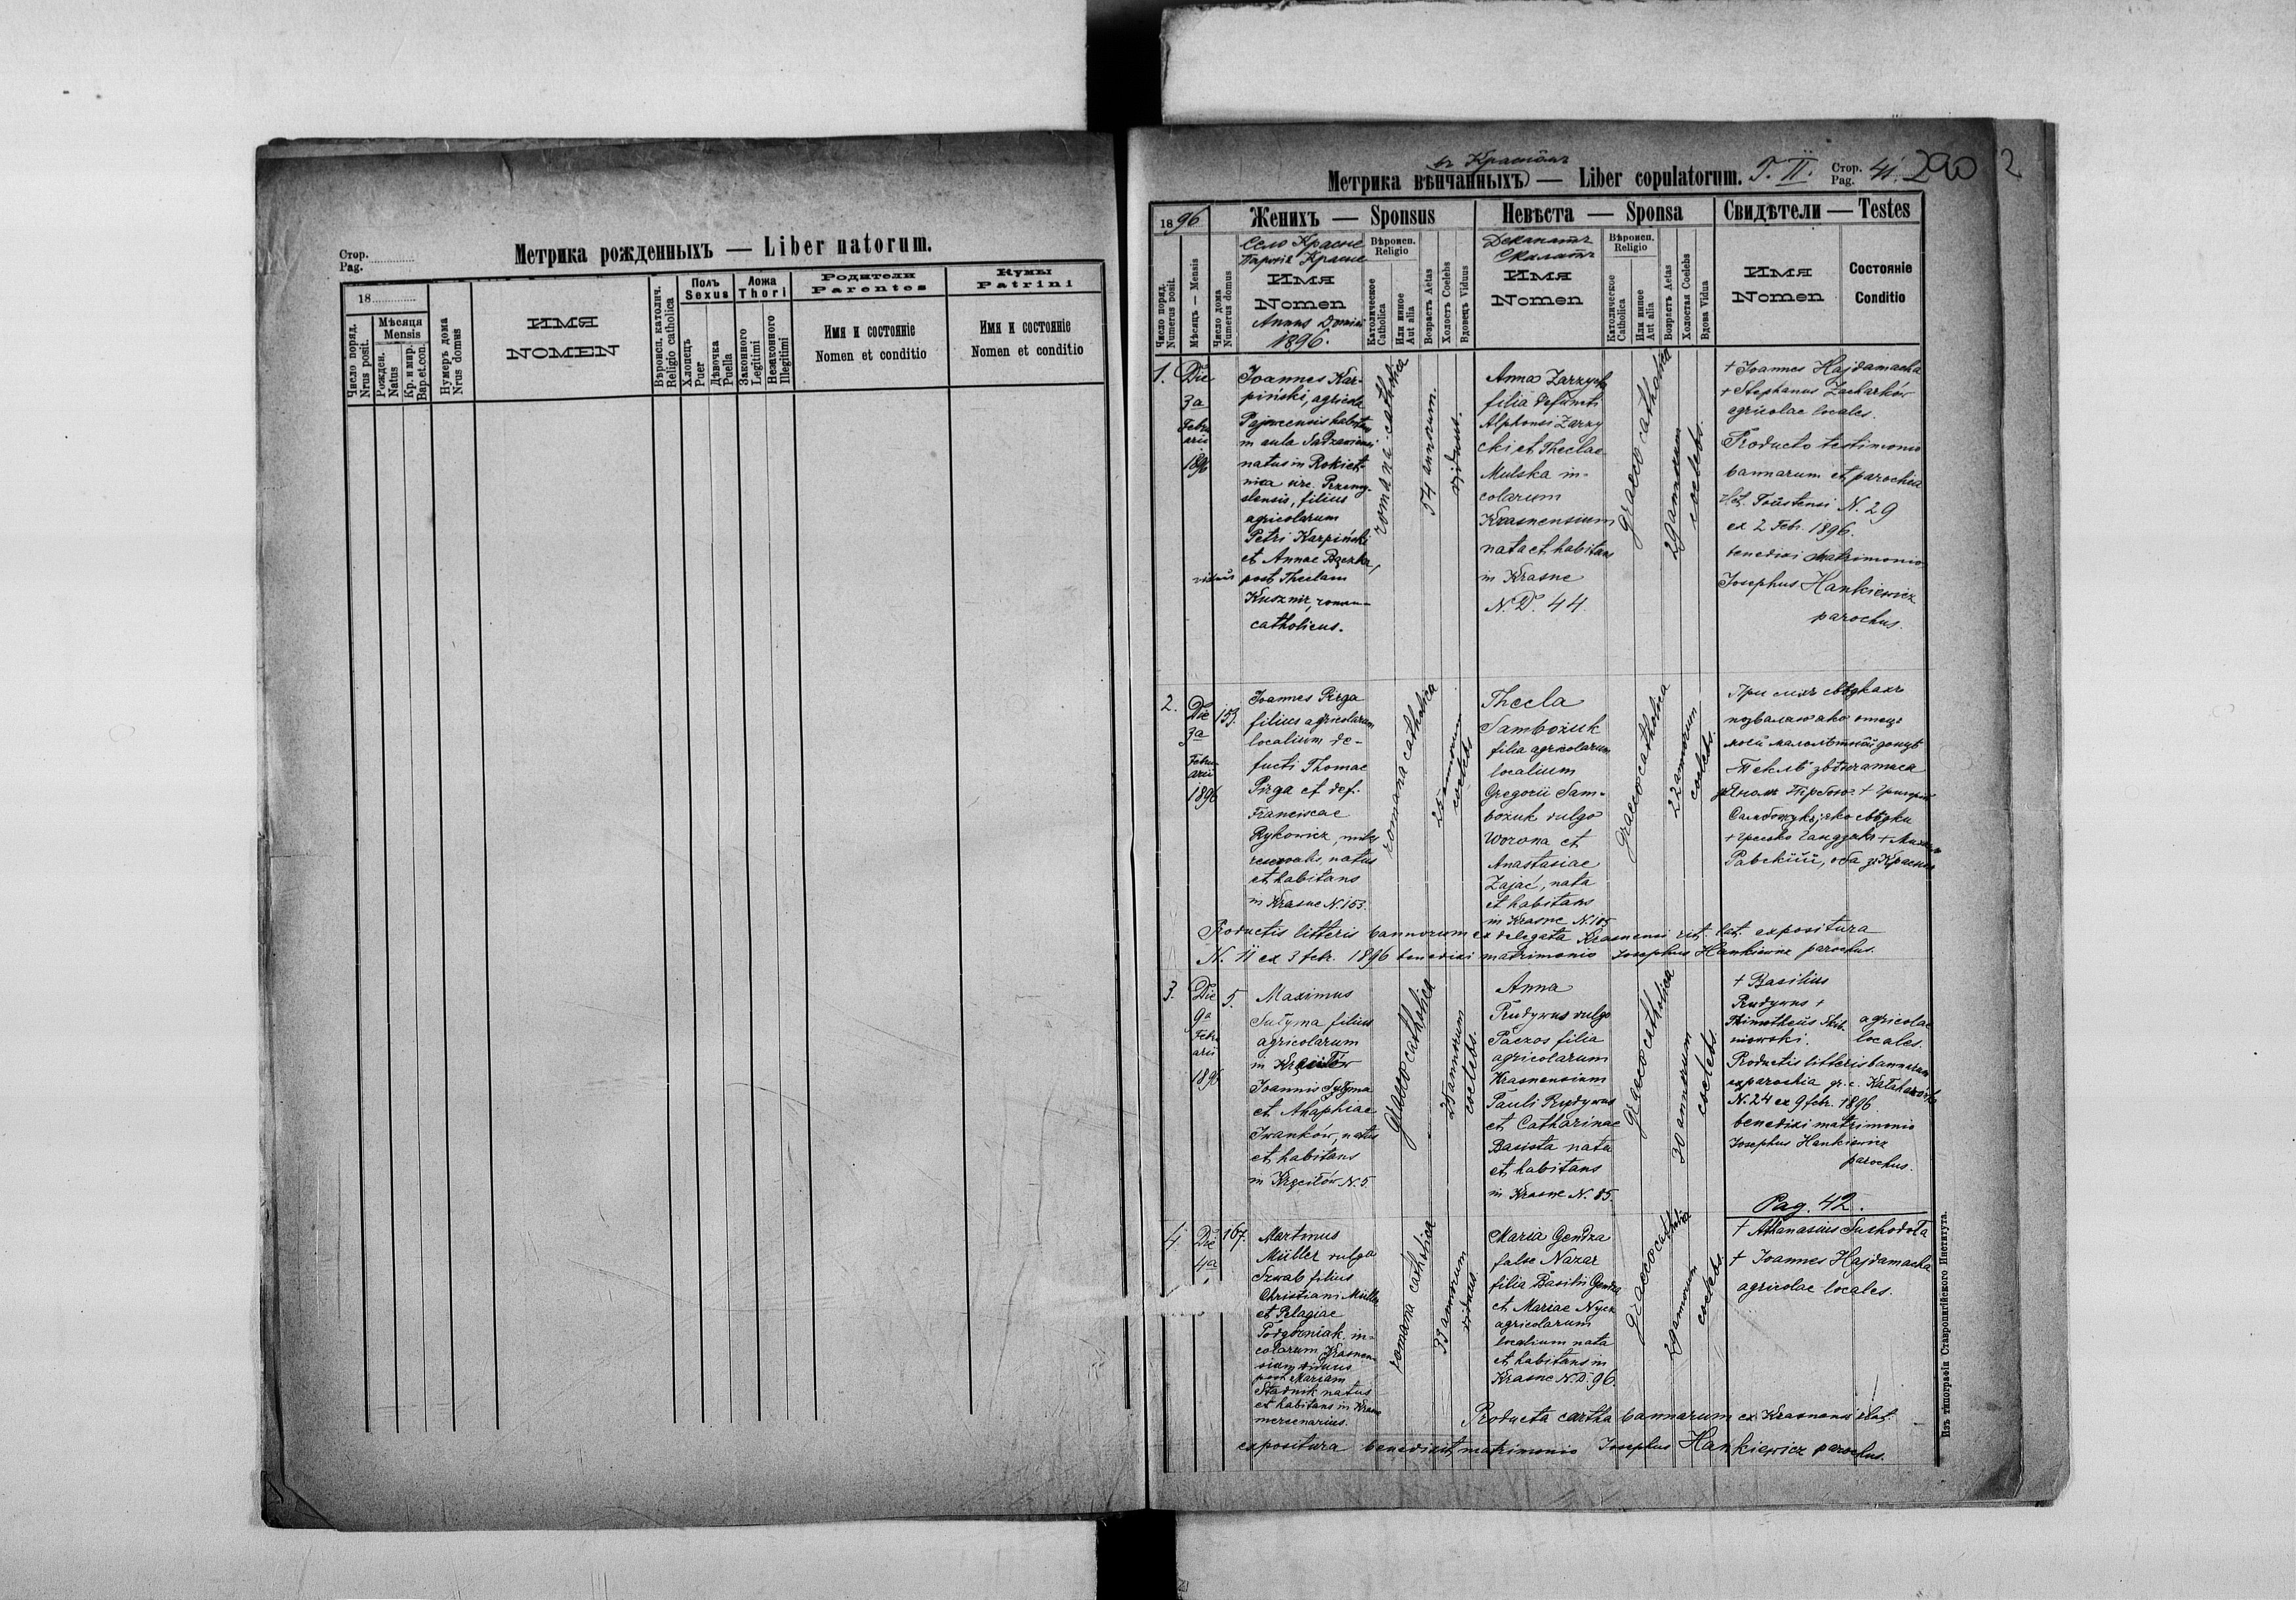 Стор.
Pag.
Метрика рожденныхъ — Liber natorum.
18
Число поряд.
Nrus posit.
Мѣсяця
Mensis
Рожден.
Natus
Кр. и мир.
Bap. et con.
Нумеръ дома
Nrus domus
ИМЯ
NOMEN
Вѣроисп. католич.
Religio catholica
Полъ
Sexus
Хлопець
Puer
Дѣвочка
Puella
Ложа
Thori
Законного
Legitimi
Незаконного
Illegitimi
Родители
Parentes
Имя и состояніе
Nomen et conditio
Кумы
Patrini
Имя и состояніе
Nomen et conditio
въ Красномъ
Метрика вѣнчанныхъ — Liber copulatorum. T. II.
Стор.
Pag. 41. 290 2
1896
Женихъ — Sponsus
Невѣста — Sponsa
Свидѣтели — Testes
Число поряд.
Numerus posit.
Мѣсяць — Mensis
Число дома
Numerus domus
Село Красне
Парохія Красне
Имя
Nomen
Annus Domini
1896.
Вѣроисп.
Religio
Католическое
Catholica
Или иное
Aut alia
Возрастъ Aetas
Холостъ Coelebs
Вдовець Viduus
Деканатъ
Скалатъ
Имя
Nomen
Вѣроисп.
Religio
Католическое
Catholica
Или иное
Aut alia
Возрастъ Aetas
Холостая Coelebs
Вдова Vidua
Имя
Nomen
Состояніе
Conditio
1.
Die
3a
Febru
arii
1896
Joannes Kar-
piński, agricola
in aula Sadzawensi
natus in Rokiet-
nica circ. Przemy-
slensis, filius
agricolarum
Petri Karpiński
et Annae Pączka,
viduus post Theclam
Kusznir, roman-
catholicus.
romana-catholica
54 annorum.
viduus.
Anna Zarzycka
filia defuncti
Alphonsi Zarzy
cki et Theclae
Mulska in-
colarum
Krasnensium
nata et habitans
in Krasne
N. D. 44.
graeco catholica
29 annorum
coelebs.
+ Joannes Hajdamacha
+ Stephanus Zacharków
agricolae locales.
Producto testimonio
bannorum et parochia
lat. Toustensi N. 29
ex 2 Febr. 1896.
benedixi matrimonio
Josephus Hankiewicz
parochus.
2.
Die
3a
Febru
arii
1896
153.
Joannes Pirga
filius agricolarum
localium de-
functi Thomae
Pirga et def.
Franciscae
Rykowicz, miles
reservalis, natus
et habitans
in Krasne N. 153.
romana catholica
25 annorum
coelebs
Thecla
Sambożuk
filia agricolarum
localium
Gregorii Sam-
bożuk vulgo
Worona et
Anastasiae
Zając, nata
et habitans
in Krasne N. 185
graeco catholica
22 annorum
coelebs.
При сихъ свѣдкахъ
позваляю яко отець
моей малолѣтной доньцѣ
Теклѣ звѣнчатися
зъ Яномъ Пірґою + Григорій
Самбожукъ, яко свѣдки
Равскій, оба зъ Красного
Productis litteris bannorum ex delegata Krasnensi rit. lat. expositura
N. 11 ex 3 febr. 1896 benedixi matrimonio Josephus Hankiewicz parochus.
3.
Die
9a
Febru
arii
1896
5.
Maximus
Sułyma filius
agricolarum
in Kręciłów
Joannis Sułyma
et Ahaphiae
Iwanków, natus
et habitans
in Kręciłów N. 5.
graeco catholica
25 annorum
coelebs.
Anna
Rudywus vulgo
Paczos filia
agricolarum
Krasnensium
Pauli Rudywus
et Catharinae
Basista nata
et habitans
in Krasne N. 85.
graeco catholica
30 annorum
coelebs.
+ Basilius
Rudywus +
Thimotheus Skib-
niowski.
agricolae
locales.
Productis litteris bannorum
ex parochia gr. c. Kałaharówka
N. 24 ex 9 febr. 1896
benedixi matrimonio
Josephus Hankiewicz
parochus.
Pag. 42.
4.
Die
4a
167.
Martinus
Müller vulgo
Szwab filius
Christiani Müller
et Pelagiae
Podgórniak in-
colarum Krasnen
sium viduus
post Mariam
Stadnik natus
et habitans in Krasne
mercenarius.
romana catholica
33 annorum
viduus.
Maria Gendza
false Nazar
filia Basilii Gendza
et Mariae Nyck
agricolarum
localium nata
et habitans in
Krasne N. D. 96.
graeco catholica
29 annorum
coelebs.
+ Athanasius Suchodoła
+ Joannes Hajdamacha
agricolae locales.
Producta cartha bannorum ex Krasnensi r. lat.
expositura benedixit matrimonio Josephus Hankiewicz parochus.
Изъ типографіи Ставропигійского Института.